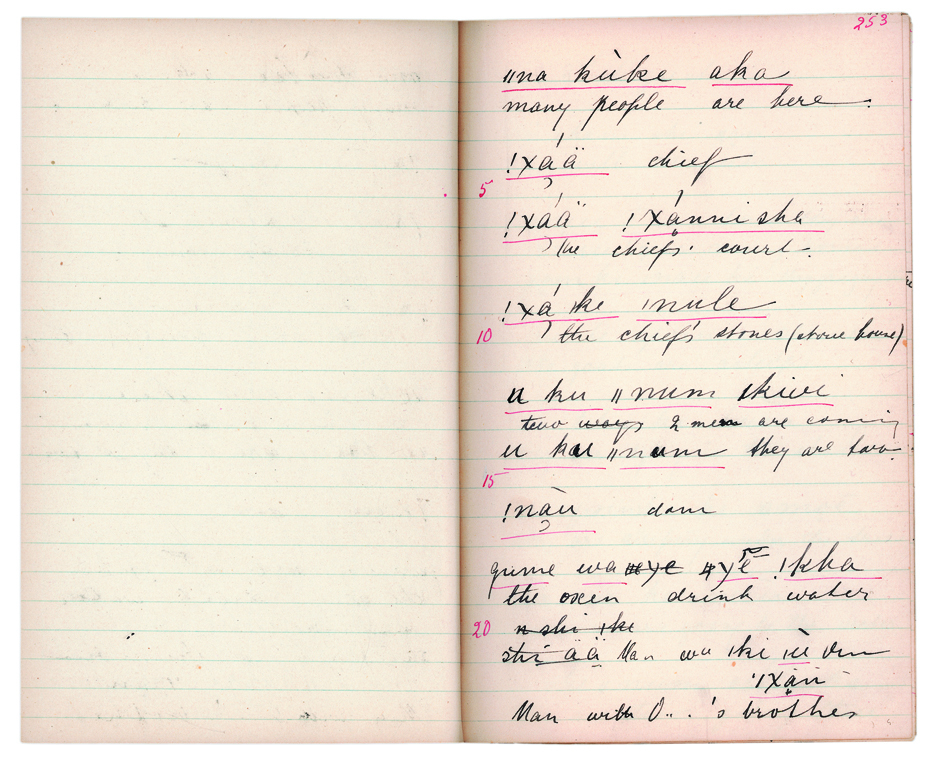 253
ǁna kùke aka
many people are here.
!xáä chief
5
!xáä !xánni sha
the chief's court.
!xá ǀke ǀnule
10 the chief's stones (stone house)
u ku ǁnum ǀkiwi
two ways 2 men are coming
u ku ǁnum they are two
15
!nàu dam
gume wa ye !kha
the oxen drink water
20 n shi ǀke
Man wa ǀki
ǀxän
Man with O...'s brother